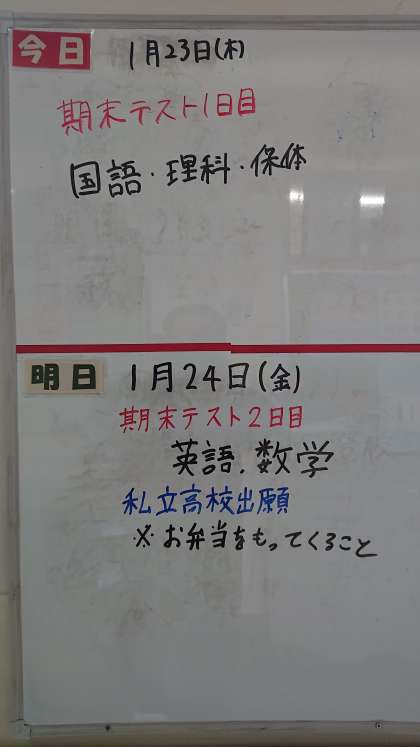 今日 1月23日(木)
期末テスト1日目
国語・理科・保体
明日 1月24日(金)
期末テスト2日目
英語.数学
私立高校出願
※お弁当をもってくること